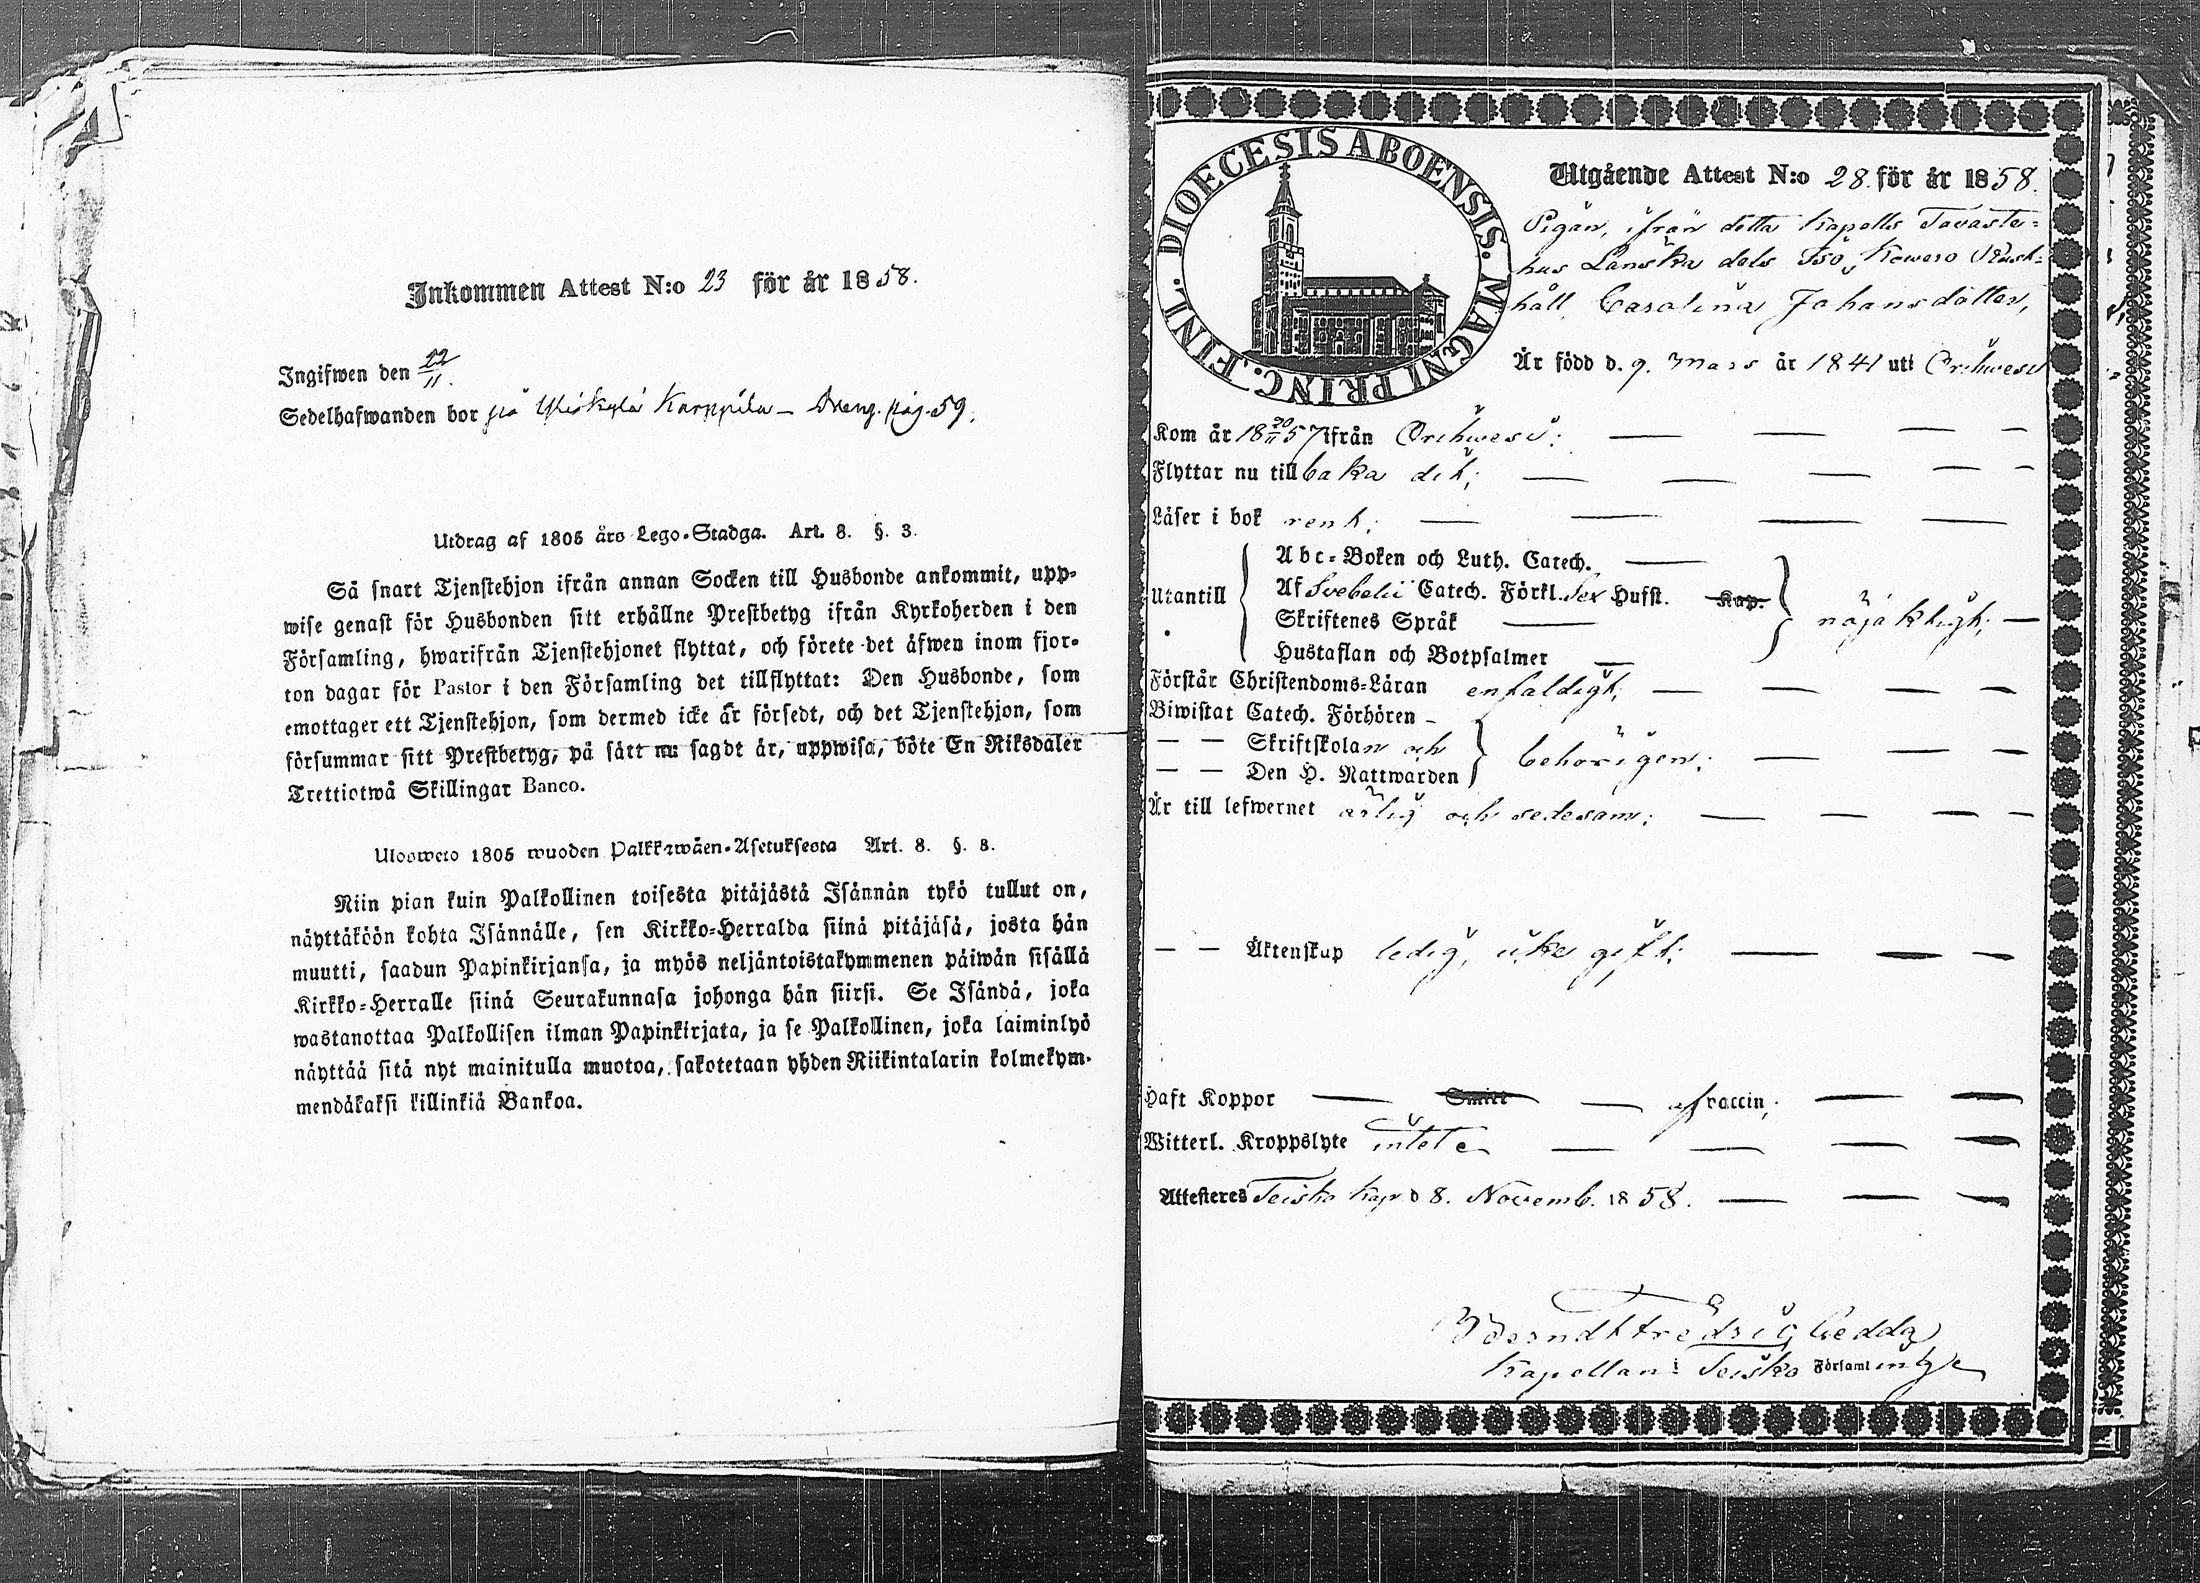 Inkommen Attest N:o 23 för år 1858.
Ingifwen den 22/11.
Sedelhafwanden bor på Yliskylä Karppila – Dreng. pag. 59.
Utdrag af 1805 års Lego-Stadga. Art. 8. §. 3.
Så snart Tjenstehjon ifrån annan Socken till Husbonde ankommit, upp-
wise genast för Husbonden sitt erhållne Prestbetyg ifrån Kyrkoherden i den
Församling, hwarifrån Tjenstehjonet flyttat, och förete det äfwen inom fjor-
ton dagar för Pastor i den Församling det tillflyttat: Den Husbonde, som
emottager ett Tjenstehjon, som dermed icke är försedt, och det Tjenstehjon, som
försummar sitt Prestbetyg, på sätt nu sagdt är, uppwisa, böte En Riksdaler
Trettiotwå Skillingar Banco.
Ulosweto 1805 wuoden Palkkawäen-Asetuksesta Art. 8. §. 3.
Niin pian kuin Palkollinen toisesta pitäjästä Isännän tykö tullut on,
näyttäköön kohta Isännälle, sen Kirkko-Herralda siinä pitäjäsä, josta hän
muutti, saadun Papinkirjansa, ja myös neljäntoistakymmenen päiwän sisällä
Kirkko-Herralle siinä Seurakunnasa johonga hän siirsi. Se Isändä, joka
wastanottaa Palkollisen ilman Papinkirjata, ja se Palkollinen, joka laiminlyö
näyttää sitä nyt mainitulla muotoa, sakotetaan yhden Riikintalarin kolmekym-
mendäkaksi killinkiä Bankoa.
FINL. DIOECESIS ABOENSIS. MAGNI PRINC.
Utgående Attest N:o 28. för år 1858.
Pigan, ifrån detta Kapells Tavaste-
hus Länska dels Iso Kowero Rust-
håll, Carolina Johansdotter,
Är född d. 9. Mars år 1841 uti Orihwesi
Kom år 18 20/11 57 ifrån Orihwesi;
Flyttar nu tillbaka dit;
Läser i bok rent;
Utantill
Abc-Boken och Luth. Catech.
Af Svebelii Catech. Förkl. Sex Hufst. Kap.
Skriftenes Språk
Hustaflan och Botpsalmer
nöjaktigt;
Förstår Christendoms-Läran enfaldigt;
Biwistat Catech. Förhören
— — Skriftskolan och
— — Den H. Nattwarden
behörigen;
Är till lefwernet ärlig och sedesam;
— — Äktenskap ledig, icke gift;
Haft Koppor — Smitt — af vaccin;
Witterl. Kroppslyte intet
Attesteres Teisko Kap. d 8. Novemb. 1858.
Berndt Fredric Gedda
Kapellan i Teisko Församlinge